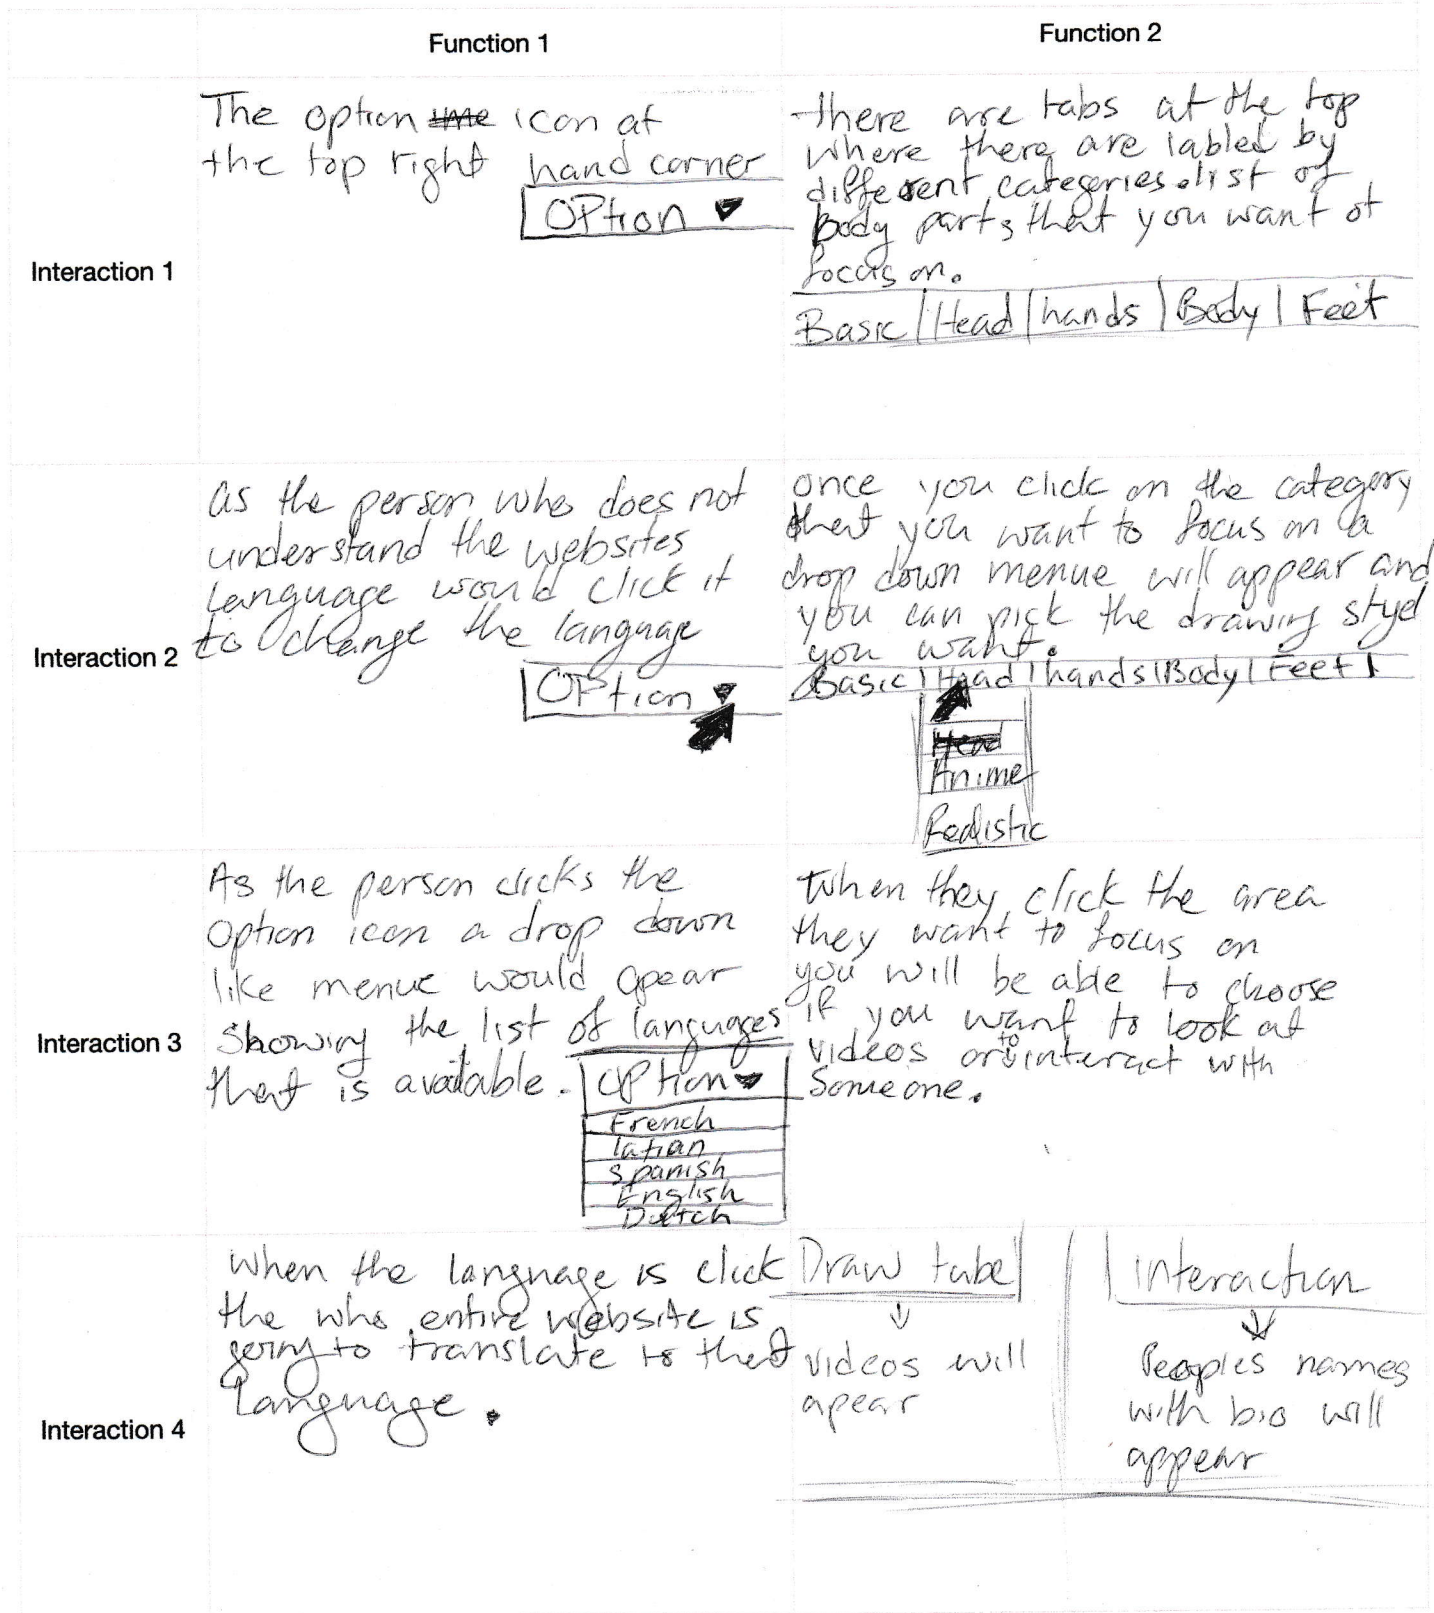 Function 1
Function 2
Interaction 1
The option icon at
the top right hand corner
OPtion
there are tabs at the top
where there are labled by
different categories. list of
Body parts that you want ot
focus on.
Basic | Head | hands | Body | Feet
Interaction 2
as the person who does not
understand the websites
language would click it
to change the language
OPtion
once you click on the category
that you want to focus on a
drop down menue will appear and
you can pick the drawing styel
you want.
Basic | Head | hands | Body | Feet |
Head
Anime
Realistic
Interaction 3
As the person clicks the
Option icon a drop down
like menue would apear
showing the list of languages
that is available.
OPtion
French
latian
spanish
English
Dutch
When they click the area
they want to focus on
you will be able to choose
if you want to look at
videos or to interact with
Someone.
Interaction 4
When the language is click
the who entire website is
going to translate to that
language.
Draw tube
videos will
apear
interaction
Peoples names
with bio will
appear